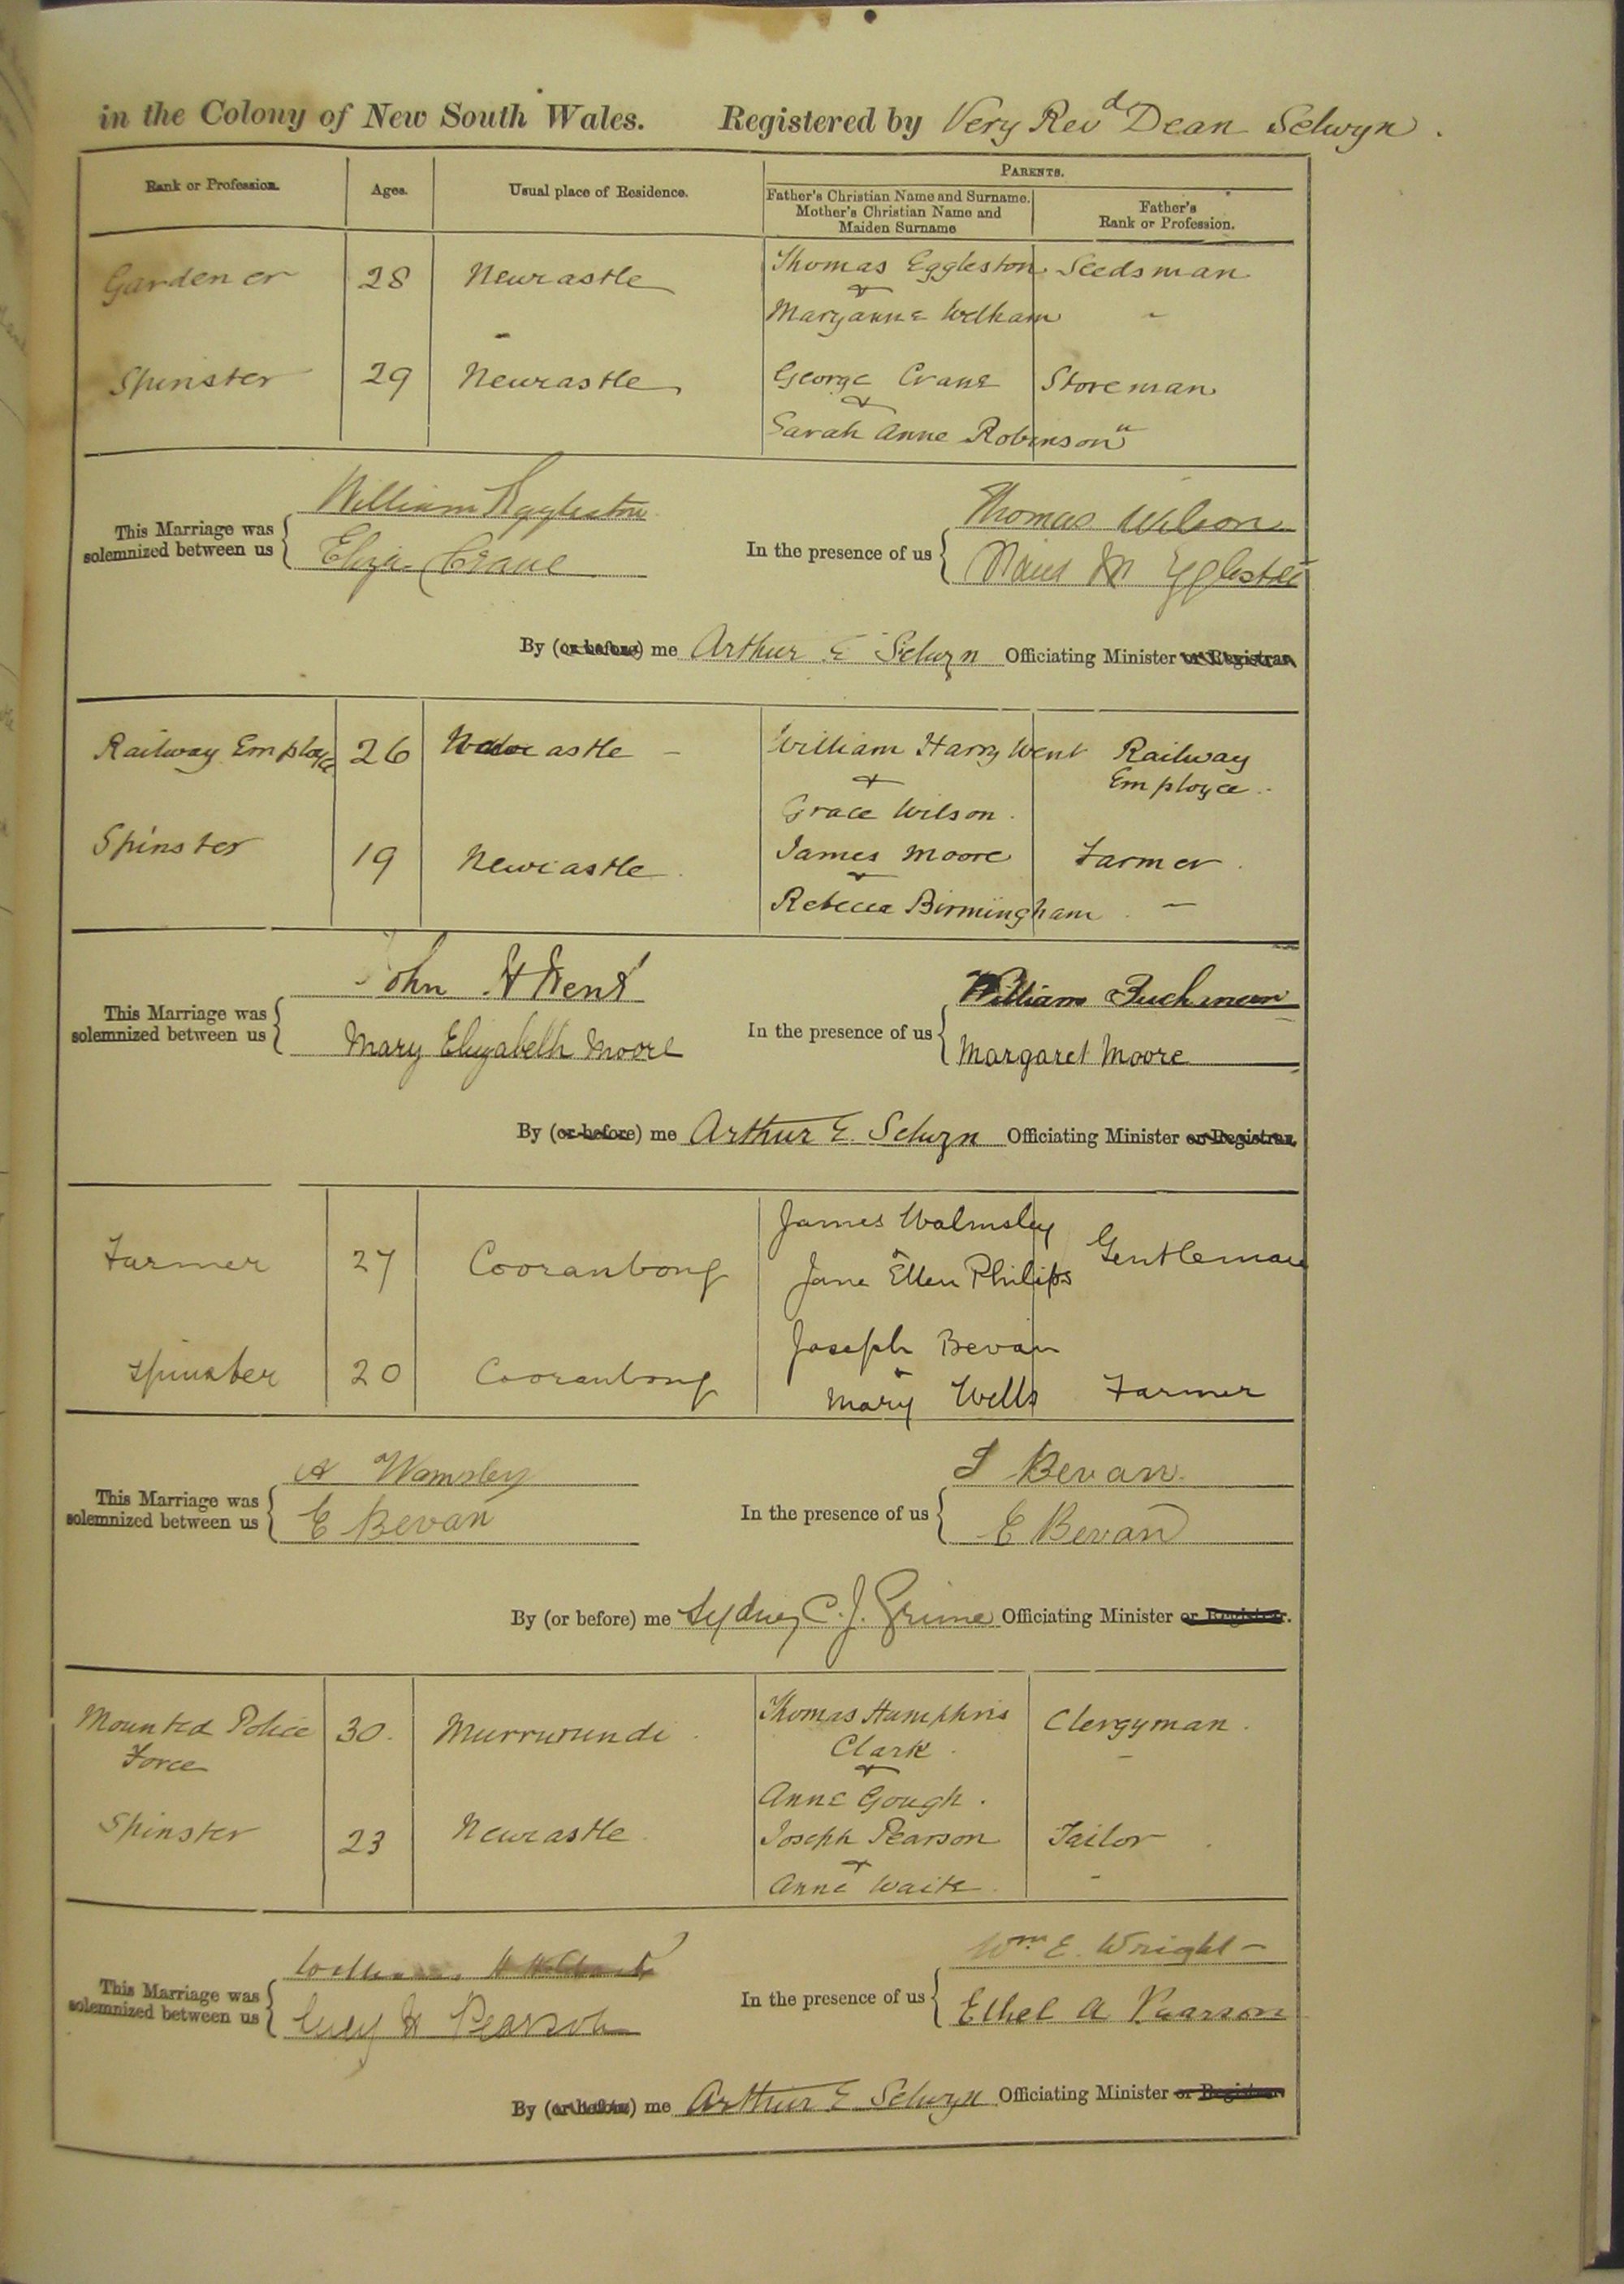 in the Colony of New South Wales. Registered by Very Revd Dean Selwyn.
Rank or Profession. Ages. Usual place of Residence. PARENTS.
Father's Christian Name and Surname. Mother's Christian Name and Maiden Surname
Father's Rank or Profession.
Gardener 28 Newcastle Thomas Eggleston Seedsman
&
Maryanne Welham -
Spinster 29 Newcastle George Crane Storeman
&
Sarah Anne Robinson "
This Marriage was solemnized between us William Eggleston
Eliza Crane
In the presence of us Thomas Wilson
M
By (or before) me Arthur E Selwyn Officiating Minister or Registrar.
Railway Employee 26 Newcastle - William Harry Went Railway
& Employee.
Grace Wilson.
Spinster 19 Newcastle. James Moore Farmer.
&
Rebecca Birmingham. -
This Marriage was solemnized between us John H Went
Mary Elizabeth Moore
In the presence of us William
Margaret Moore
By (or before) me Arthur E. Selwyn Officiating Minister or Registrar.
Farmer 27 Cooranbong James Walmsley Gentleman
&
Jane Ellen Philips
Spinster 20 Cooranbong Joseph Bevan
&
Mary Wells Farmer
This Marriage was solemnized between us A Wamsley
E Bevan
In the presence of us Bevan
E Bevan
By (or before) me Sydney C. J. Grime Officiating Minister or Registrar.
Mounted Police 30. Murrurundi. Thomas Humphris Clergyman.
Force Clark. -
&
Anne Gough.
Spinster 23 Newcastle. Joseph Pearson Tailor.
&
Anne Waite. -
This Marriage was solemnized between us William H
Lucy Pearson
In the presence of us Wm. E. Wright -
Ethel A Pearson
By (or before) me Arthur E Selwyn Officiating Minister or Registrar.